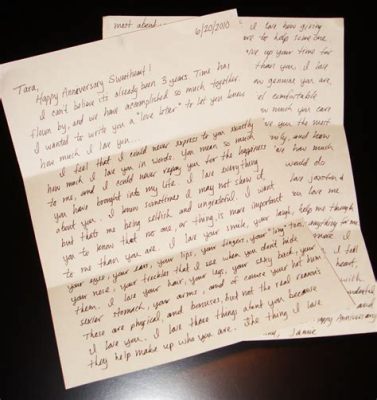 6/20/2010
Tara,
Happy Anniversary Sweetheart!
I can't believe its already been 3 years. Time has
flown by, and we have accomplished so much together.
I wanted to write you a "love letter" to let you know
how much I love you...
I feel that I could never express to you exactly
how much I love you in words. You mean so much
to me, and I could never repay you for the happiness
you have brought into my life. I love everything
about you. I know sometimes I may not show it,
but thats me being selfish and ungrateful. I want
you to know that no one, or thing, is more important
to me than you are. I love your smile, your laugh,
your eyes, your ears, your lips, your fingers, your toes,
your nose, your freckles that I see when you don't hide
them. I love your hair, your legs, your silky back, your
sexier stomach, your arms, and of course your hot
These are physical, and bonuses, but not the real reasons
I love you. I love these things about you because
they help make up who you are. The thing I love
most about
I love how giving
are to help someone
give up your time for
than you. I love
how genuine you are.
feel comfortable
how much you care
love you the most
how much
would do
love
you love me
help me through
anything for me
more I
I feel
heart.
with
Happy Anniversary